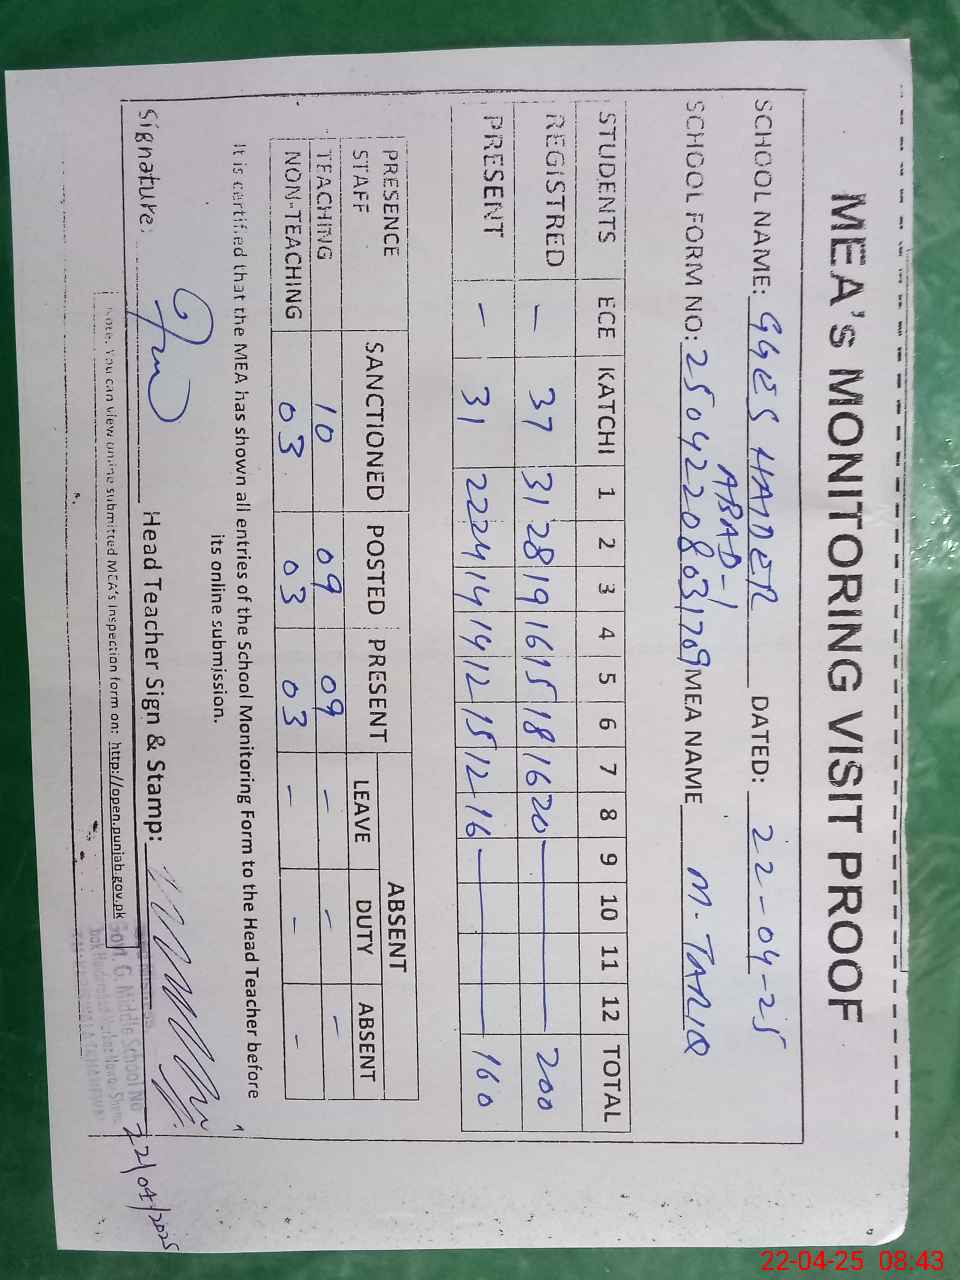 MEA's MONITORING VISIT PROOF
SCHOOL NAME: GGES HAIDER DATED: 22-04-25
ABAD-1
SCHOOL FORM NO: 25042208031709 MEA NAME M. TARIQ
STUDENTS ECE KATCHI 1 2 3 4 5 6 7 8 9 10 11 12 TOTAL
REGISTRED - 37 31 28 19 16 15 18 16 20 — 200
PRESENT - 31 22 24 14 14 12 15 12 16 — 160
PRESENCE ABSENT
STAFF SANCTIONED POSTED PRESENT LEAVE DUTY ABSENT
TEACHING 10 09 09 - - -
NON-TEACHING 03 03 03 - - -
It is certified that the MEA has shown all entries of the School Monitoring Form to the Head Teacher before
its online submission.
Signature: Head Teacher Sign & Stamp:
Govt. G. Middle School No
22/04/2025
Note. You can view online submitted MEA's Inspection form on: http://open.punjab.gov.pk
22-04-25 08:43